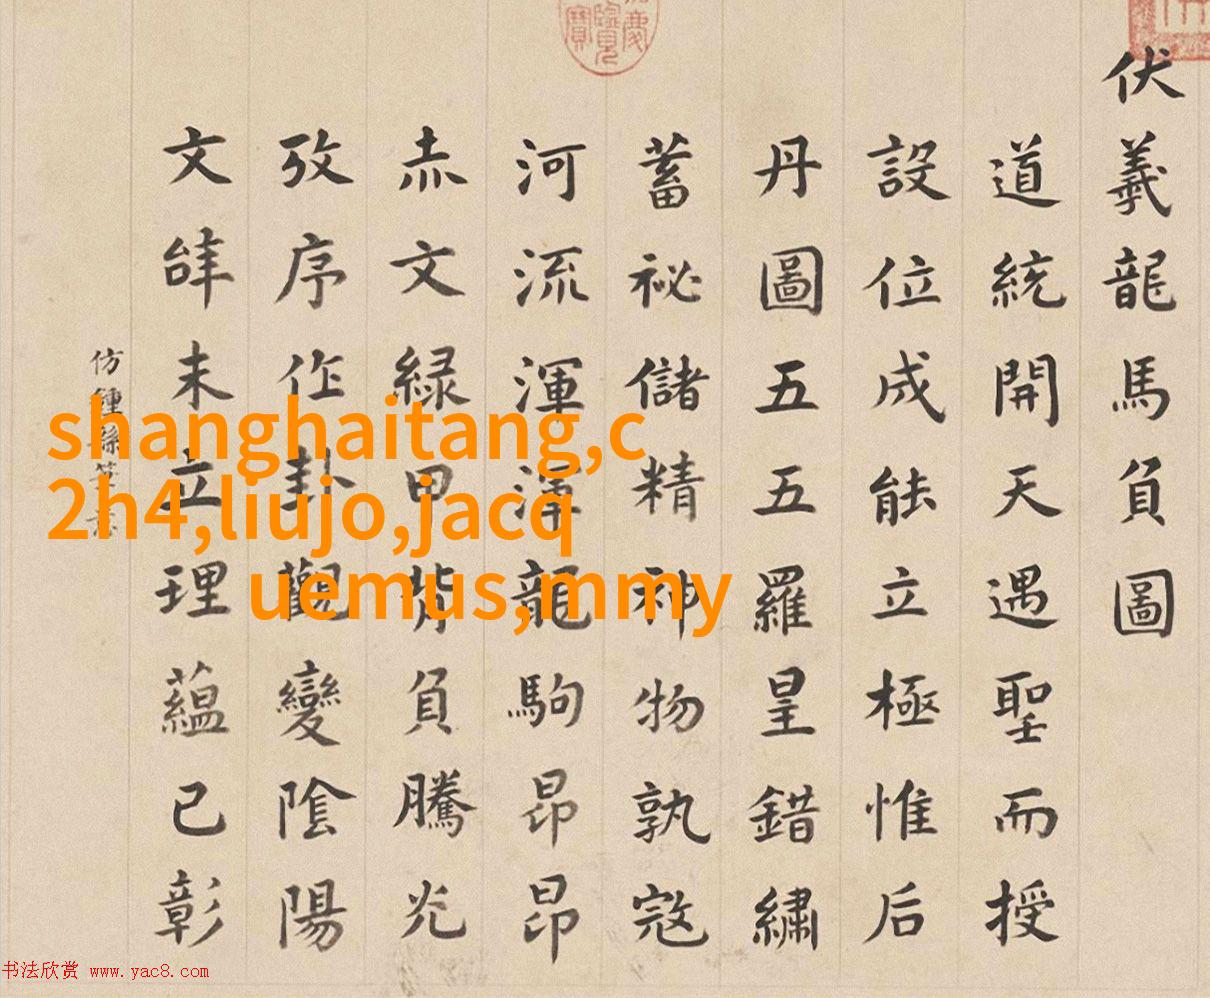 伏羲龍馬負圖
道統開天遇聖而授
設位成能立極惟后
丹圖五五羅皇錯繡
蓄祕儲精神物孰寇
河流渾渾龍駒昂昂
赤文緑甲背負騰光
攷序作卦觀變陰陽
文辝未立理蘊已彰
仿鍾繇筆意
shanghaitang,c
2h4,liujo,jacq
uemus,mmy
书法欣赏 www.yac8.com